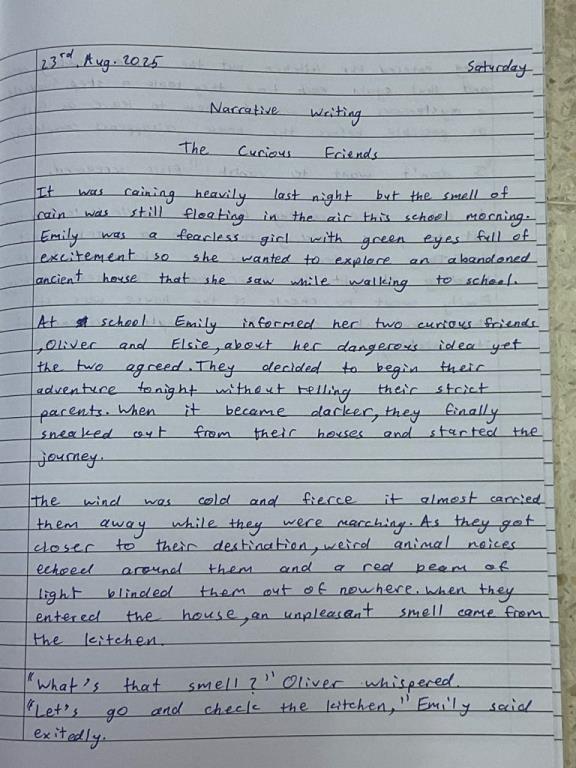 23rd. Aug. 2025 Saturday
Narrative Writing
The Curious Friends
It was raining heavily last night but the smell of
rain was still floating in the air this school morning.
Emily was a fearless girl with green eyes full of
excitement so she wanted to explore an abandoned
ancient house that she saw while walking to school.
At school Emily informed her two curious friends
,Oliver and Elsie, about her dangerous idea yet
the two agreed. They decided to begin their
adventure tonight without telling their strict
parents. When it became darker, they finally
sneaked out from their houses and started the
journey.
The wind was cold and fierce it almost carried
them away while they were marching. As they got
closer to their destination, weird animal noices
echoed around them and a red beam of
light blinded them out of nowhere. When they
entered the house, an unpleasant smell came from
the kitchen.
"What's that smell?" Oliver whispered.
"Let's go and check the kitchen," Emily said
exitedly.